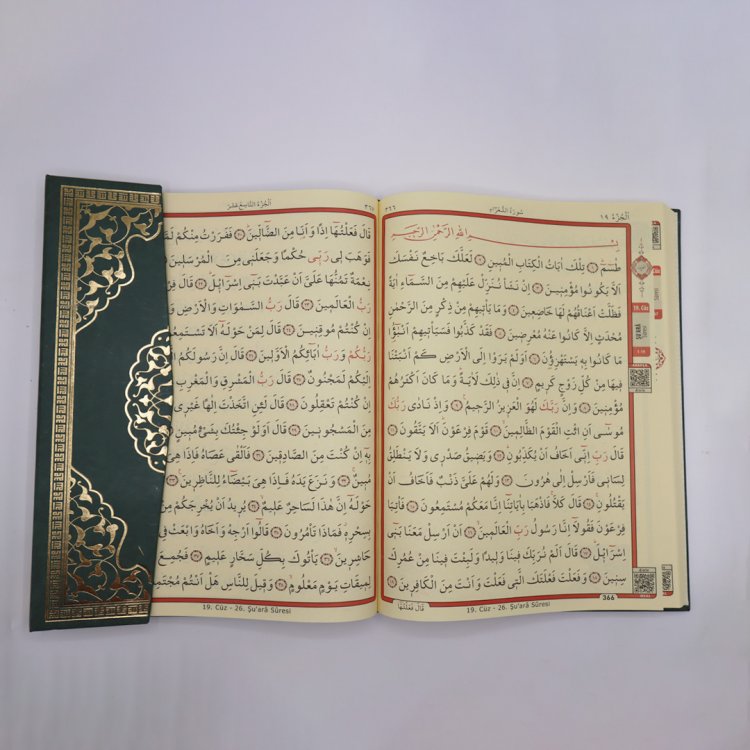 اَلْجُزْءُ ١٩ سُورَةُ الشُّعَرَاءِ ٣٦٦
بِسْمِ اللّٰهِ الرَّحْمٰنِ الرَّحِيمِ
طٰسٓمٓ ﴿١﴾ تِلْكَ اٰيَاتُ الْكِتَابِ الْمُبِينِ ﴿٢﴾ لَعَلَّكَ بَاخِعٌ نَفْسَكَ
اَلَّا يَكُونُوا مُؤْمِنِينَ ﴿٣﴾ اِنْ نَشَأْ نُنَزِّلْ عَلَيْهِمْ مِنَ السَّمَاءِ اٰيَةً
فَظَلَّتْ اَعْنَاقُهُمْ لَهَا خَاضِعِينَ ﴿٤﴾ وَمَا يَأْتِيهِمْ مِنْ ذِكْرٍ مِنَ الرَّحْمٰنِ
مُحْدَثٍ اِلَّا كَانُوا عَنْهُ مُعْرِضِينَ ﴿٥﴾ فَقَدْ كَذَّبُوا فَسَيَأْتِيهِمْ اَنْبٰٓؤُا
مَا كَانُوا بِهِ يَسْتَهْزِؤُنَ ﴿٦﴾ اَوَلَمْ يَرَوْا اِلَى الْاَرْضِ كَمْ اَنْبَتْنَا
فِيهَا مِنْ كُلِّ زَوْجٍ كَرِيمٍ ﴿٧﴾ اِنَّ فِي ذٰلِكَ لَاٰيَةً وَمَا كَانَ اَكْثَرُهُمْ
مُؤْمِنِينَ ﴿٨﴾ وَاِنَّ رَبَّكَ لَهُوَ الْعَزِيزُ الرَّحِيمُ ﴿٩﴾ وَاِذْ نَادٰى رَبُّكَ
مُوسٰٓى اَنِ ائْتِ الْقَوْمَ الظَّالِمِينَ ﴿١٠﴾ قَوْمَ فِرْعَوْنَ اَلَا يَتَّقُونَ ﴿١١﴾
قَالَ رَبِّ اِنِّي اَخَافُ اَنْ يُكَذِّبُونِ ﴿١٢﴾ وَيَضِيقُ صَدْرِي وَلَا يَنْطَلِقُ
لِسَانِي فَاَرْسِلْ اِلٰى هٰرُونَ ﴿١٣﴾ وَلَهُمْ عَلَيَّ ذَنْبٌ فَاَخَافُ اَنْ
يَقْتُلُونِ ﴿١٤﴾ قَالَ كَلَّا فَاذْهَبَا بِاٰيَاتِنَا اِنَّا مَعَكُمْ مُسْتَمِعُونَ ﴿١٥﴾ فَأْتِيَا
فِرْعَوْنَ فَقُولَا اِنَّا رَسُولُ رَبِّ الْعَالَمِينَ ﴿١٦﴾ اَنْ اَرْسِلْ مَعَنَا بَنِي
اِسْرَائِيلَ ﴿١٧﴾ قَالَ اَلَمْ نُرَبِّكَ فِينَا وَلِيدًا وَلَبِثْتَ فِينَا مِنْ عُمُرِكَ
سِنِينَ ﴿١٨﴾ وَفَعَلْتَ فَعْلَتَكَ الَّتِي فَعَلْتَ وَاَنْتَ مِنَ الْكَافِرِينَ ﴿١٩﴾
366
قَالَ فَعَلْتُهَا
19. Cüz - 26. Şu'arâ Sûresi
19. Cüz
ŞU'ARÂ
اَلْجُزْءُ التَّاسِعَ عَشَرَ
قَالَ فَعَلْتُهَا اِذًا وَاَنَا مِنَ الضَّالِّينَ ﴿٢٠﴾ فَفَرَرْتُ مِنْكُمْ
فَوَهَبَ لِي رَبِّي حُكْمًا وَجَعَلَنِي مِنَ الْمُرْسَلِينَ
نِعْمَةٌ تَمُنُّهَا عَلَيَّ اَنْ عَبَّدْتَ بَنِي اِسْرَائِيلَ ﴿٢٢﴾ قَالَ
رَبُّ الْعَالَمِينَ ﴿٢٣﴾ قَالَ رَبُّ السَّمٰوَاتِ وَالْاَرْضِ
اِنْ كُنْتُمْ مُوقِنِينَ ﴿٢٤﴾ قَالَ لِمَنْ حَوْلَهُ اَلَا تَسْتَمِعُونَ
رَبُّكُمْ وَرَبُّ اٰبَائِكُمُ الْاَوَّلِينَ ﴿٢٦﴾ قَالَ اِنَّ رَسُولَكُمُ
اِلَيْكُمْ لَمَجْنُونٌ ﴿٢٧﴾ قَالَ رَبُّ الْمَشْرِقِ وَالْمَغْرِبِ
اِنْ كُنْتُمْ تَعْقِلُونَ ﴿٢٨﴾ قَالَ لَئِنِ اتَّخَذْتَ اِلٰهًا غَيْرِي
مِنَ الْمَسْجُونِينَ ﴿٢٩﴾ قَالَ اَوَلَوْ جِئْتُكَ بِشَيْءٍ مُبِينٍ
بِهِ اِنْ كُنْتَ مِنَ الصَّادِقِينَ ﴿٣١﴾ فَاَلْقٰى عَصَاهُ فَاِذَا هِيَ
مُبِينٌ ﴿٣٢﴾ وَنَزَعَ يَدَهُ فَاِذَا هِيَ بَيْضَاءُ لِلنَّاظِرِينَ ﴿٣٣﴾
حَوْلَهُ اِنَّ هٰذَا لَسَاحِرٌ عَلِيمٌ ﴿٣٤﴾ يُرِيدُ اَنْ يُخْرِجَكُمْ
بِسِحْرِهِ فَمَاذَا تَأْمُرُونَ ﴿٣٥﴾ قَالُوا اَرْجِهْ وَاَخَاهُ وَابْعَثْ
حَاشِرِينَ ﴿٣٦﴾ يَأْتُوكَ بِكُلِّ سَحَّارٍ عَلِيمٍ ﴿٣٧﴾ فَجُمِعَ
لِمِيقَاتِ يَوْمٍ مَعْلُومٍ ﴿٣٨﴾ وَقِيلَ لِلنَّاسِ هَلْ اَنْتُمْ
19. Cüz - 26. Şu'arâ Sûresi